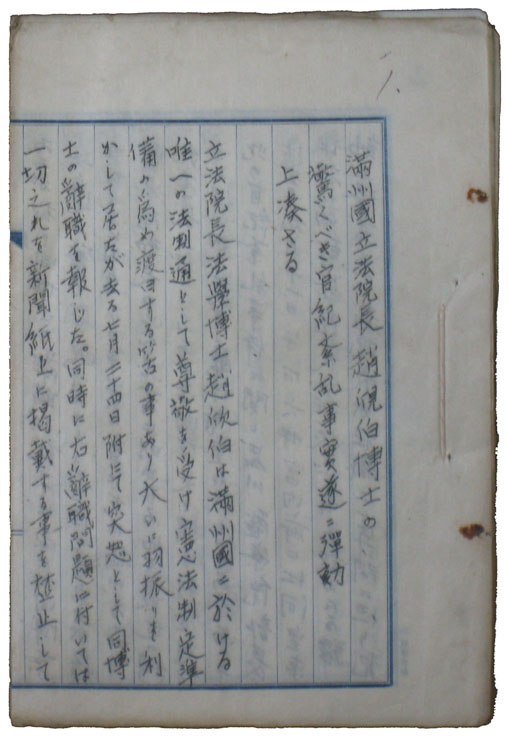 一、
満州國立法院長趙欣伯博士の
驚くべき官紀紊乱事実遂ニ弾劾
上奏さる
立法院長法學博士趙欣伯は満州國ニ於ける
唯一の法制通として尊敬を受け憲法制定準
備の為め渡日する等の事あり大いに羽振りを利
かして居たが去る七月二十四日附にて突忽として同博
士の辞職を報じた。同時に右辞職問題に付いては
一切之れを新聞紙上に掲載する事を禁止して